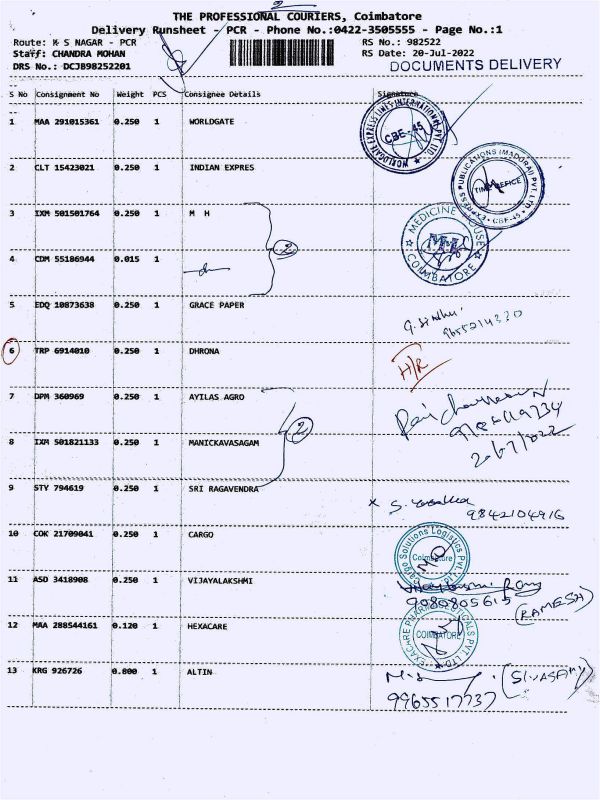 2
THE PROFESSIONAL COURIERS, Coimbatore
Delivery Runsheet - PCR - Phone No.:0422-3505555 - Page No.:1
Route: K S NAGAR - PCR RS No.: 982522
Staff: CHANDRA MOHAN RS Date: 20-Jul-2022
DRS No.: DCJB98252201 DOCUMENTS DELIVERY
S No Consignment No Weight PCS Consignee Details Signature
1 MAA 291015361 0.250 1 WORLDGATE
WORLDGATE EXPRESS LINES INTERNATIONAL PVT. LTD. CBE-45
2 CLT 15423021 0.250 1 INDIAN EXPRES
EXPRESS PUBLICATIONS (MADURAI) PVT. LTD. TIME OFFICE CBE-45
3 IXM 501501764 0.250 1 M H
MEDICINE HOUSE COIMBATORE
2
4 CDM 55186944 0.015 1
5 EDQ 10873638 0.250 1 GRACE PAPER
9655214330
6 TRP 6914010 0.250 1 DHRONA
H/R
7 DPM 360969 0.250 1 AYILAS AGRO
2
8 IXM 501821133 0.250 1 MANICKAVASAGAM
20/07/2022
9 STY 794619 0.250 1 SRI RAGAVENDRA
9842104916
10 COK 21709041 0.250 1 CARGO
Cargo Solutions Logistics Pvt. Ltd. Coimbatore
11 ASD 3418908 0.250 1 VIJAYALAKSHMI
9080805615 (RAMESH)
12 MAA 288544161 0.120 1 HEXACARE
HEXACARE PHARMACEUTICALS PVT LTD COIMBATORE
13 KRG 926726 0.800 1 ALTIN
(SIVASAMY)
9965517737